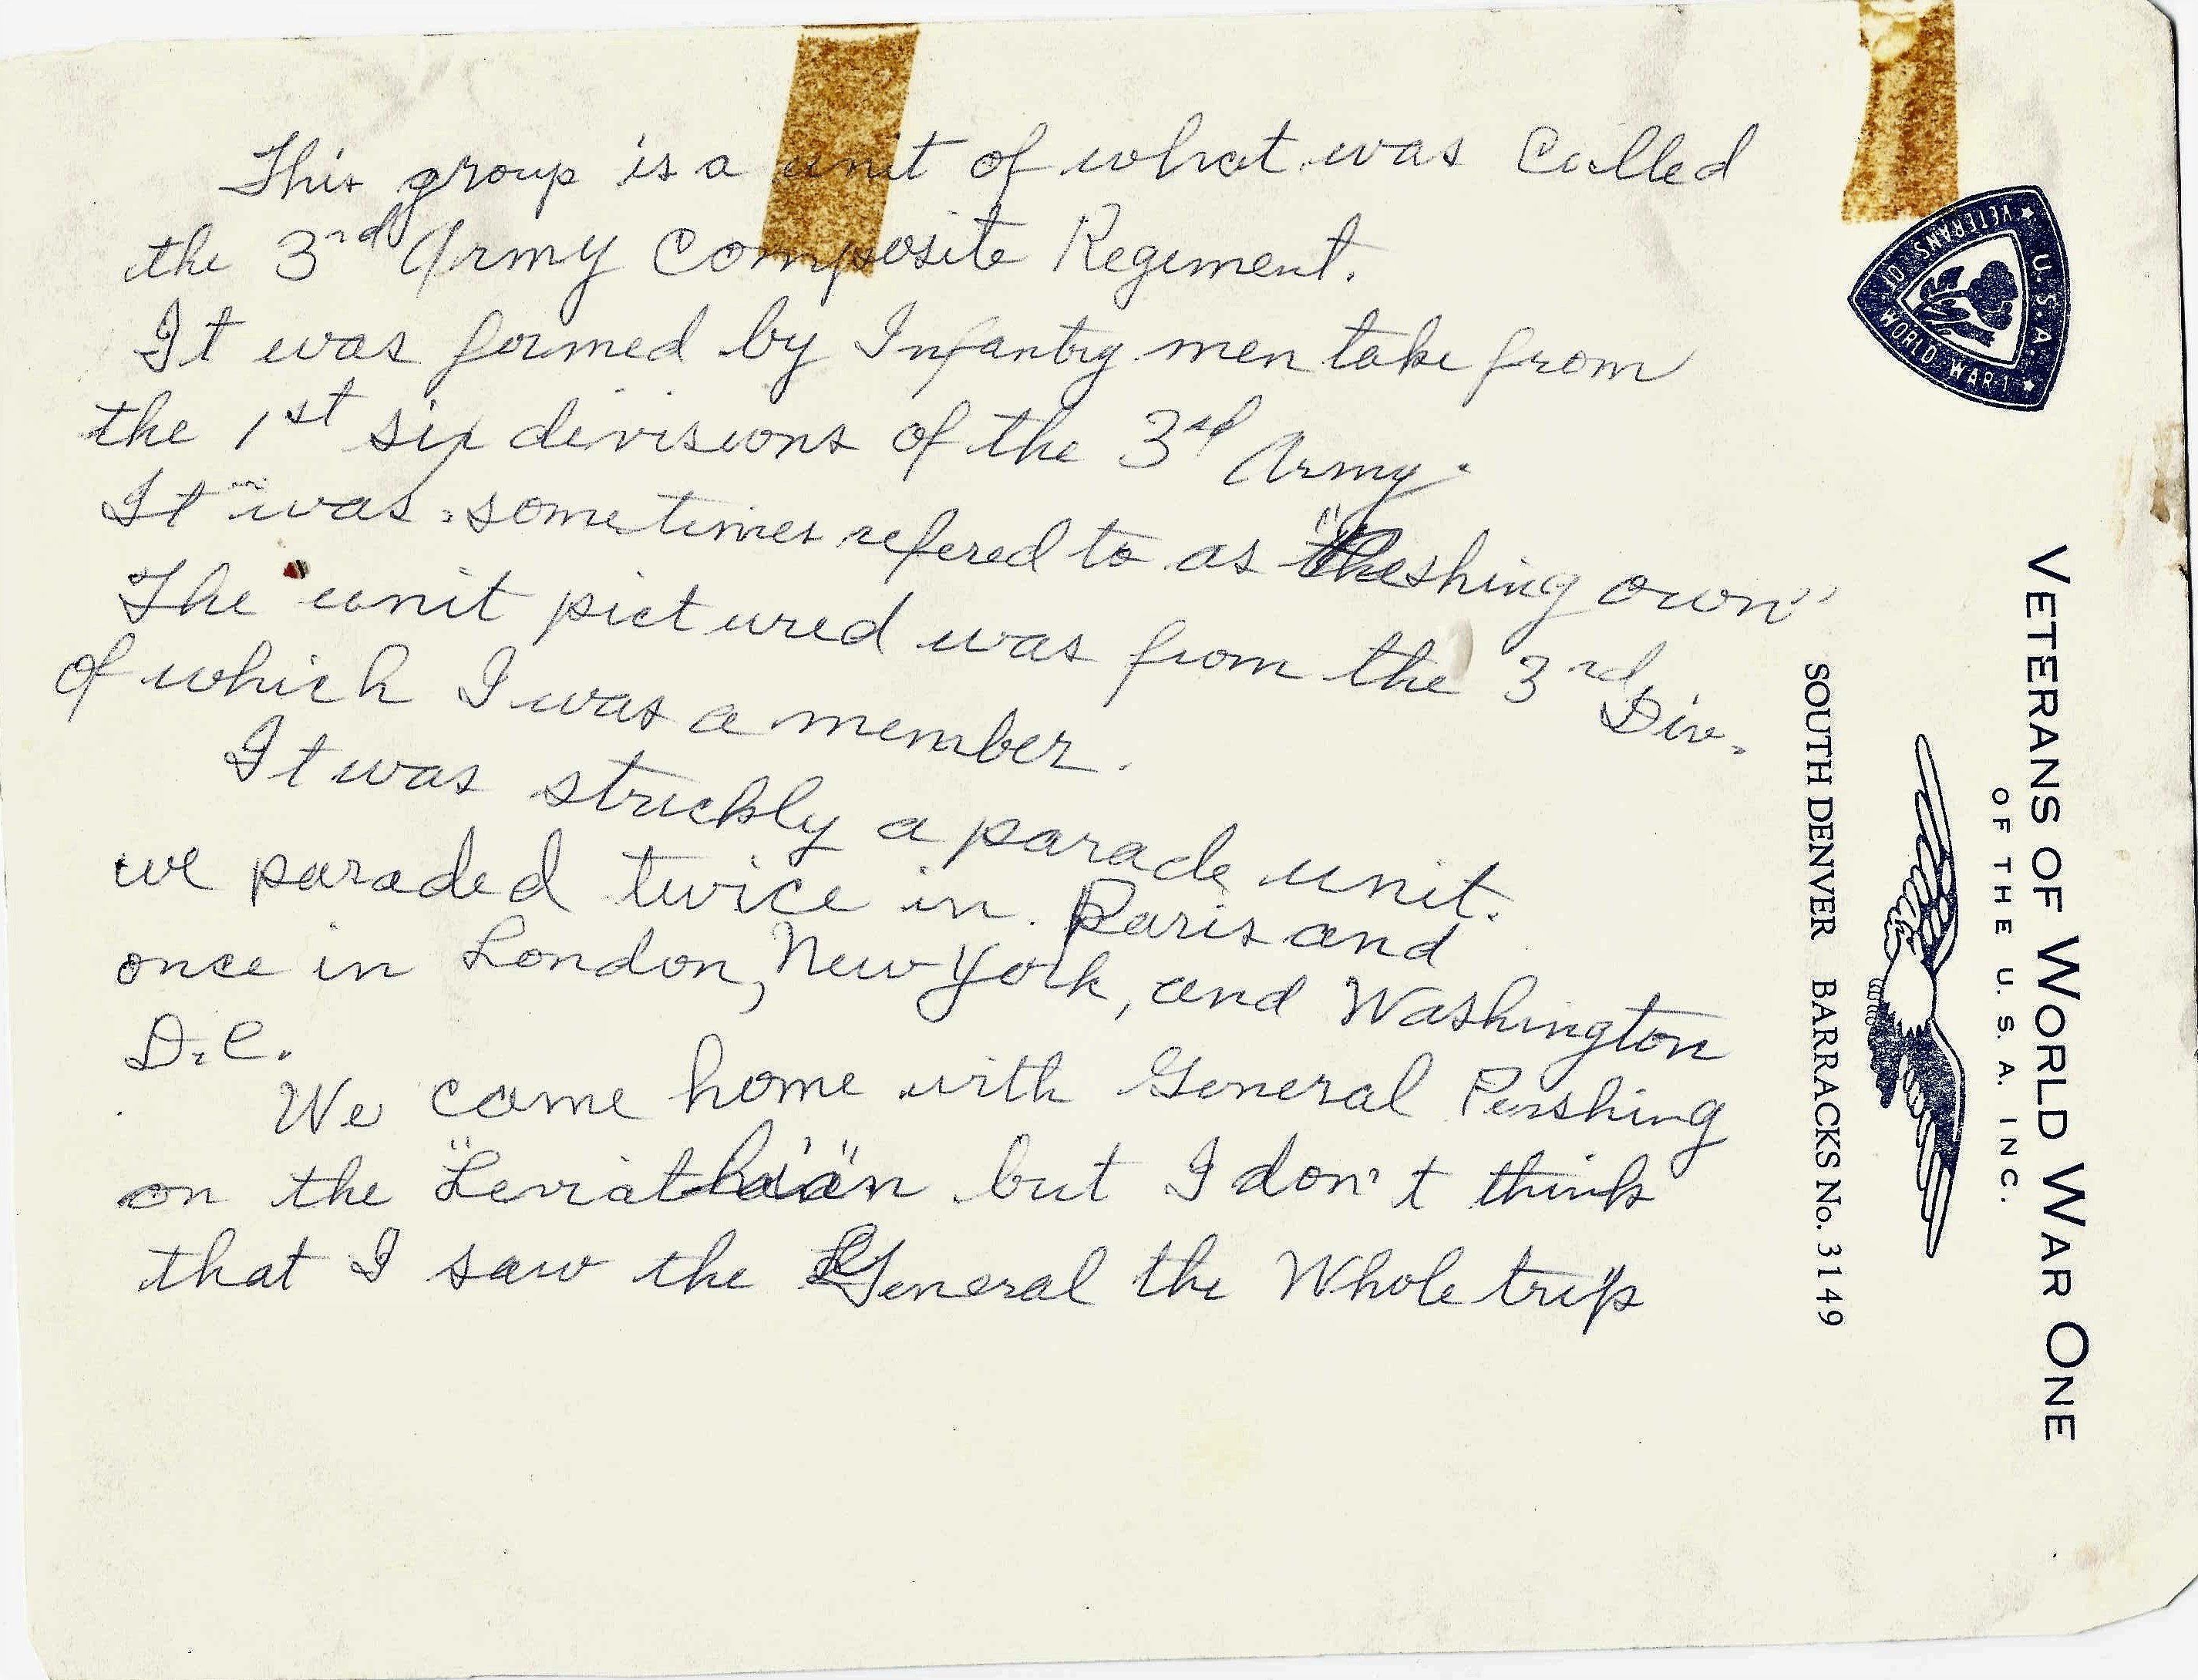 This group is a unit of what was Called
the 3rd Army Composite Regiment.
It was formed by Infantry men take from
the 1st six divisions of the 3rd Army.
It was sometimes refered to as " own"
The unit pictured was from the 3rd Div.
of which I was a member.
It was strickly a parade unit.
we paraded twice in Paris and
once in London, New York, and Washington
D.C.
We came home with General Pershing
on the "Leviathan" but I don't think
that I saw the General the Whole trip
U.S.A.
VETERANS OF WORLD WAR I
VETERANS OF WORLD WAR ONE
OF THE U. S. A. INC.
SOUTH DENVER BARRACKS No. 3149